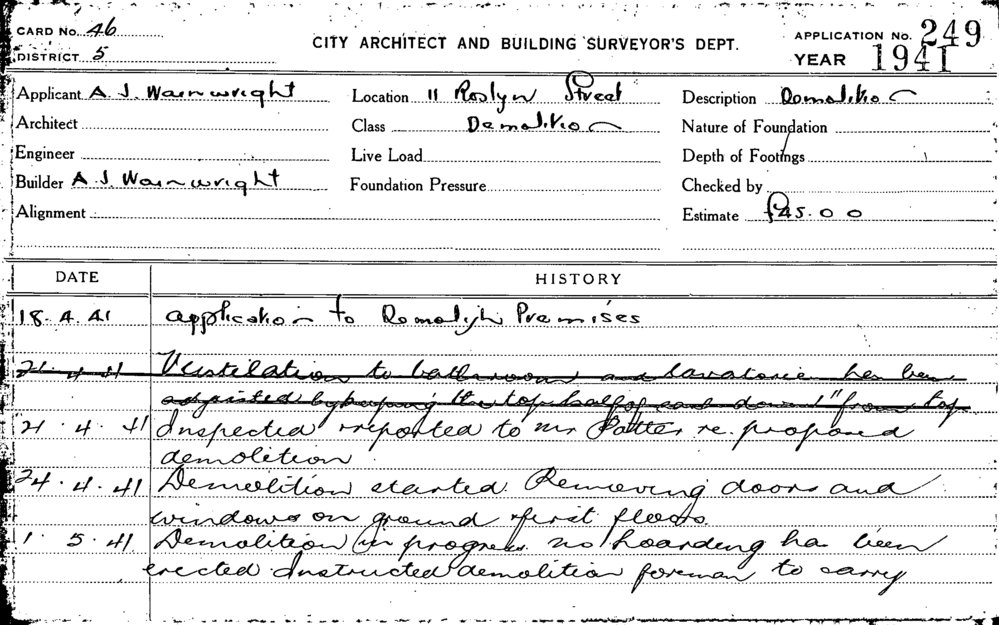 CARD No. 46
DISTRICT 5
CITY ARCHITECT AND BUILDING SURVEYOR'S DEPT.
APPLICATION No. 249
YEAR 1941
Applicant A. J. Wainwright
Location 11 Roslyn Street
Description Demolition
Architect
Class Demolition
Nature of Foundation
Engineer
Live Load
Depth of Footings
Builder A. J. Wainwright
Foundation Pressure
Checked by
Alignment
Estimate £45.0 0
DATE HISTORY
18.4.41 application to Demolish Premises
21 4 41 Ventilation to bathroom and lavatories has been
adjusted by keeping the top half of each down 1" from top
21.4.41 Inspected & reported to Mr Potter re. proposed
demolition
24.4.41 Demolition started. Removing doors and
windows on ground & first floors.
1.5.41 Demolition in progress no hoarding has been
erected. Instructed demolition foreman to carry